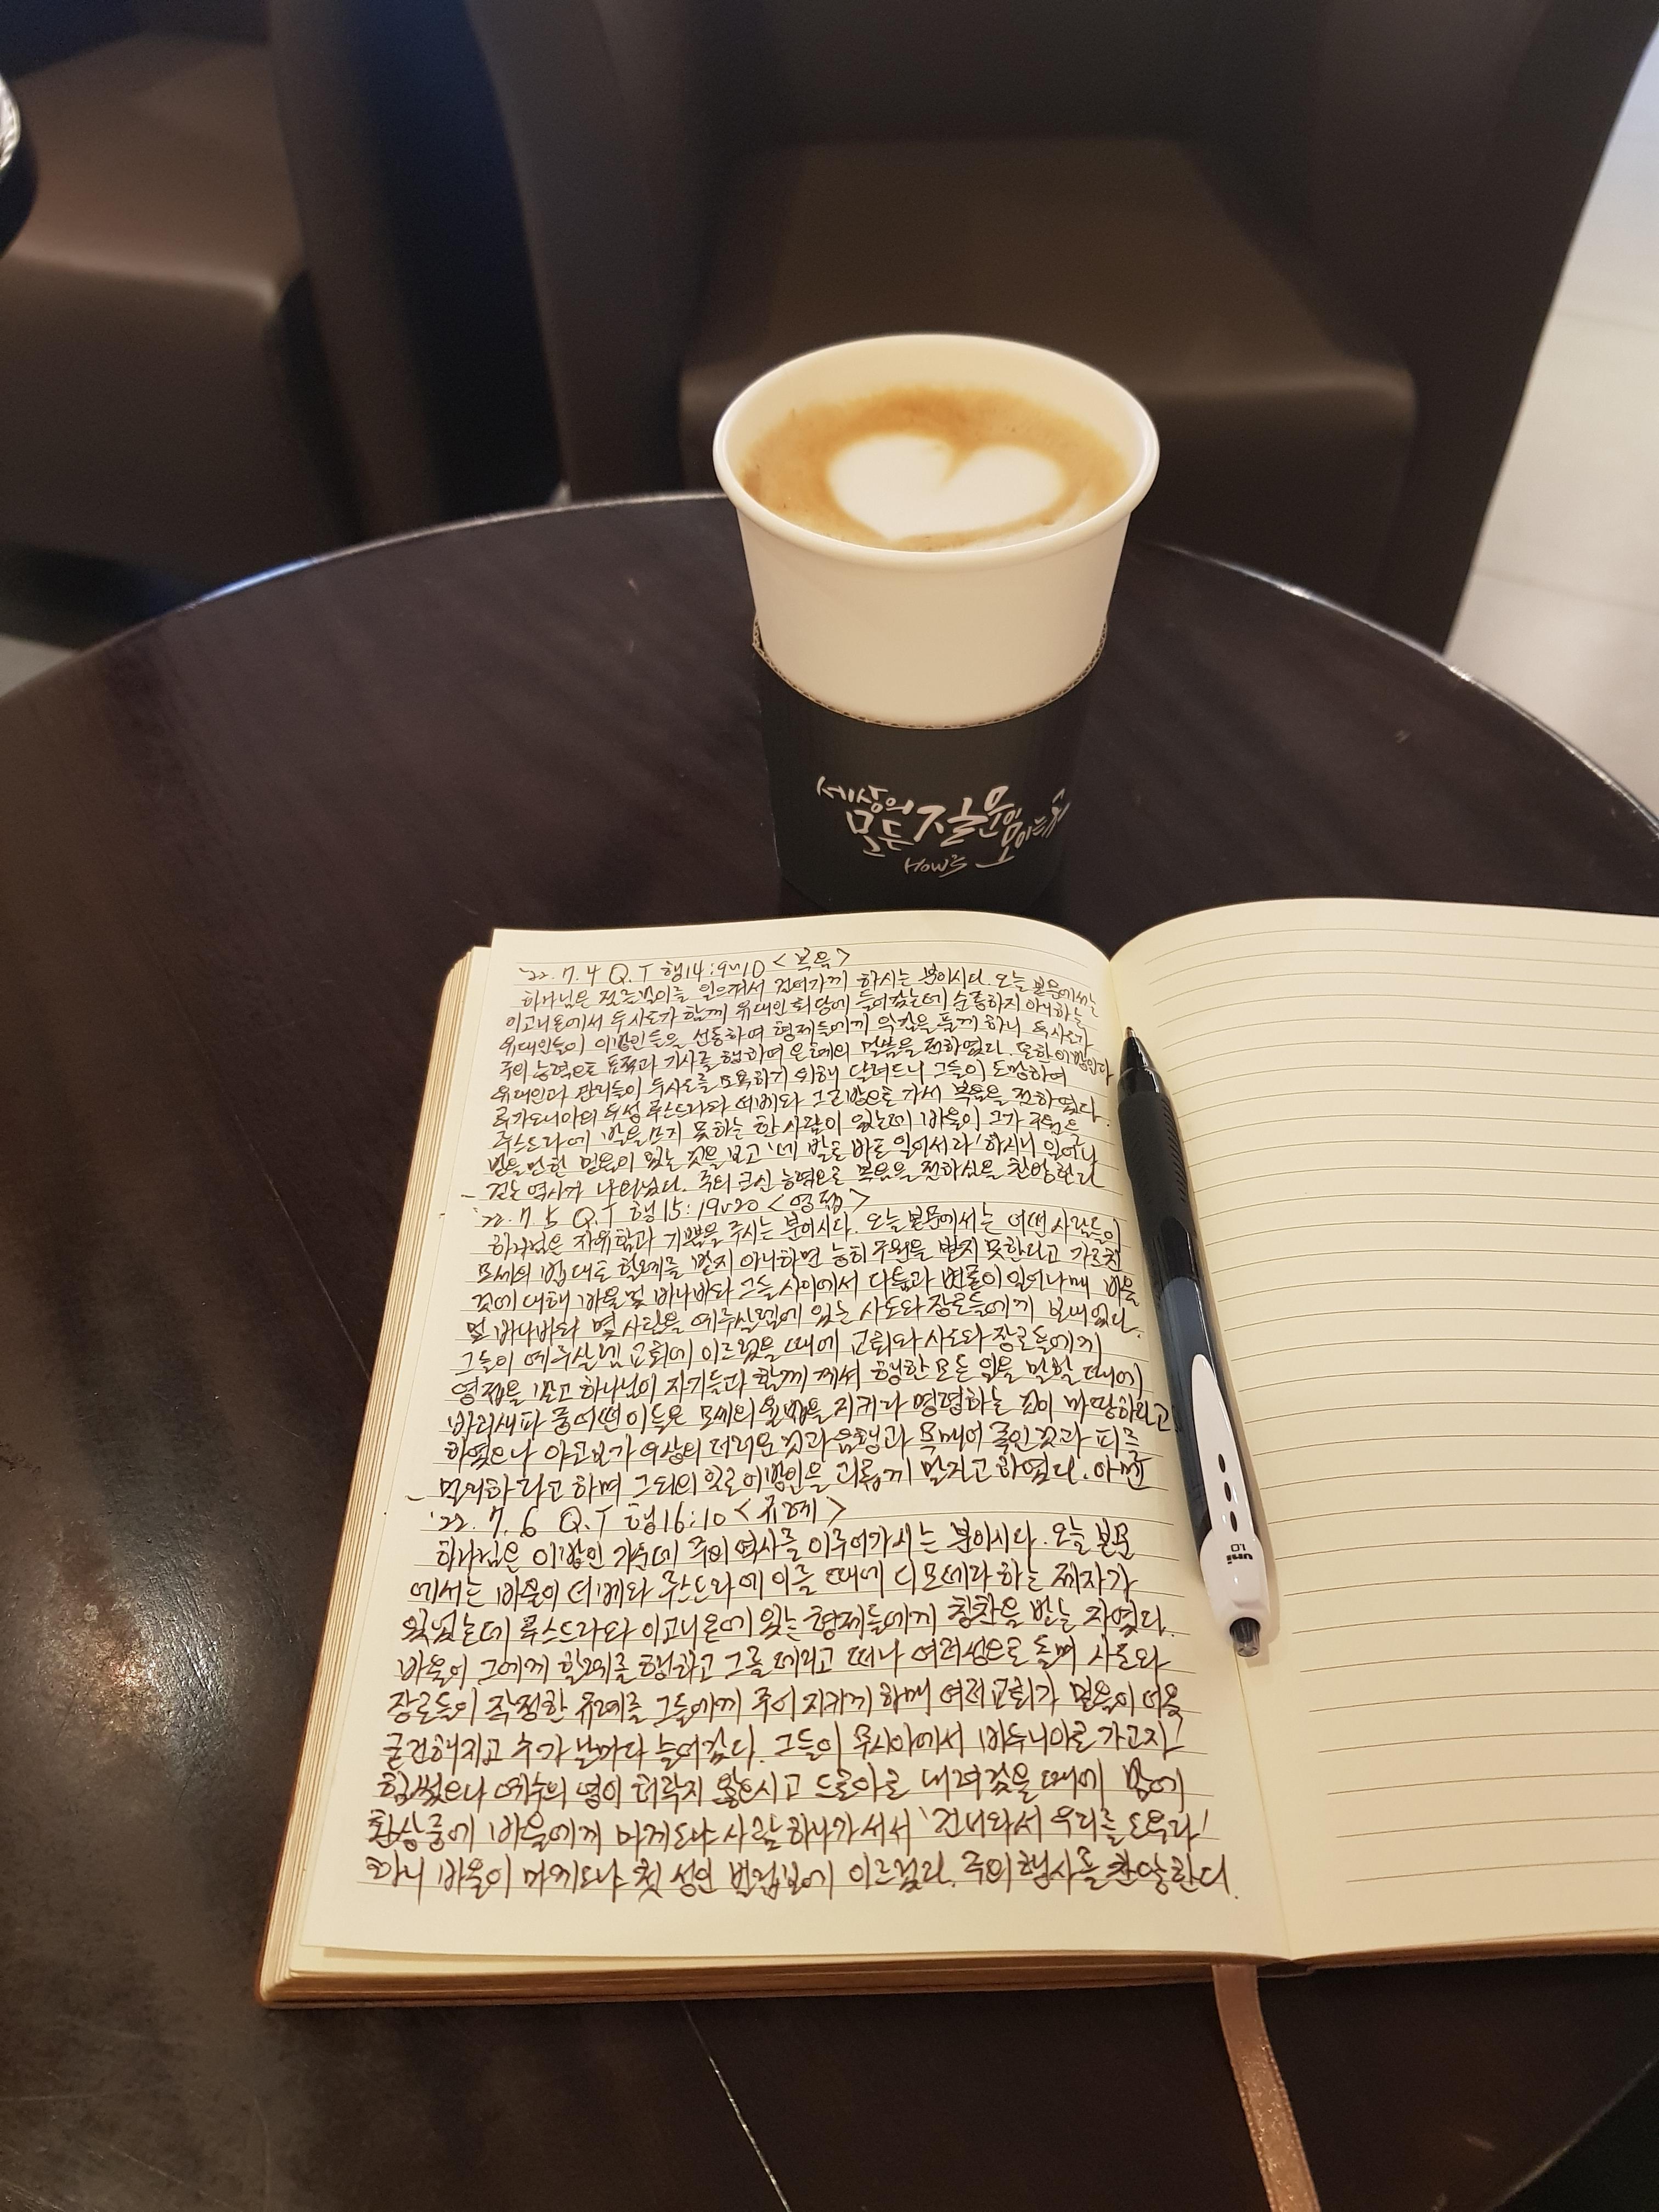 세상의
모든 질문이
모이는 곳
HOW's
'22. 7. 4 Q.T 행14:9~10 <복음>
하나님은 전흔병이를 일으켜서 걸어가게 하시는 분이시다. 오늘 본문에서는
이고니온에서 두 사도가 함께 유대인 회당에 들어갔는데 순종하지 아니하는
유대인들이 이방인들을 선동하여 형제들에게 악감을 품게 하니 두 사도가
주의 능력으로 표적과 기사를 행하여 은혜의 말씀을 전하였다. 또한 이방인과
유대인과 관리들이 두 사도를 모욕하기 위해 달려드니 그들이 도망하여
루가오니아의 두 성 루스드라와 더베와 그 근방으로 가서 복음을 전하였다.
루스드라에 발을 쓰지 못하는 한 사람이 있는데 바울이 그가 구원
받을 만한 믿음이 있는 것을 보고 '네 발로 바로 일어서라' 하시니 일어나
걷는 역사가 나타났다. 주의 크신 능력으로 복음을 전하심을 찬양한다
'22. 7. 5 Q.T 행15:19~20 <영접>
하나님은 자유함과 기쁨을 주시는 분이시다. 오늘 본문에서는 어떤 사람들이
모세의 법대로 할례를 받지 아니하면 능히 구원을 받지 못한다고 가르친
것에 대해 바울 및 바나바와 그들 사이에서 다툼과 변론이 일어나매 바울
및 바나바와 몇 사람을 예루살렘에 있는 사도와 장로들에게 보내었다.
그들이 예루살렘 교회에 이르렀을 때에 교회와 사도와 장로들에게
영접을 받고 하나님이 자기들과 함께 계셔 행한 모든 일을 말할 때에
바리새파 중 어떤 이들은 모세의 율법을 지키라 명령하는 것이 마땅하다고
하였으나 야고보가 우상의 더러운 것과 음행과 목매어 죽인 것과 피를
멀리하라고 하며 그 외의 일로 이방인을 괴롭게 말자고 하였다. 아멘
'22. 7. 6 Q.T 행16:10 <규례>
하나님은 이방인 가운데 주의 역사를 이루어가시는 분이시다. 오늘 본문
에서는 바울이 더베와 루스드라에 이를 때에 디모데라 하는 제자가
있었는데 루스드라와 이고니온에 있는 형제들에게 칭찬을 받는 자였다.
바울이 그에게 할례를 행하고 그를 데리고 떠나 여러성으로 돌며 사도와
장로들이 작정한 규례를 그들에게 주어 지키게 하매 여러 교회가 믿음이 더욱
굳건해지고 수가 날마다 늘어갔다. 그들이 무시아에서 비두니아로 가고자
힘썼으나 예수의 영이 허락지 않으시고 드로아로 내려갔을 때에 밤에
환상 중에 바울에게 마게도냐 사람 하나가 서서 '건너와서 우리를 도우라'
하니 바울이 마게도냐 첫 성인 빌립보에 이르렀다. 주의 행사를 찬양한다.
uni
1.0